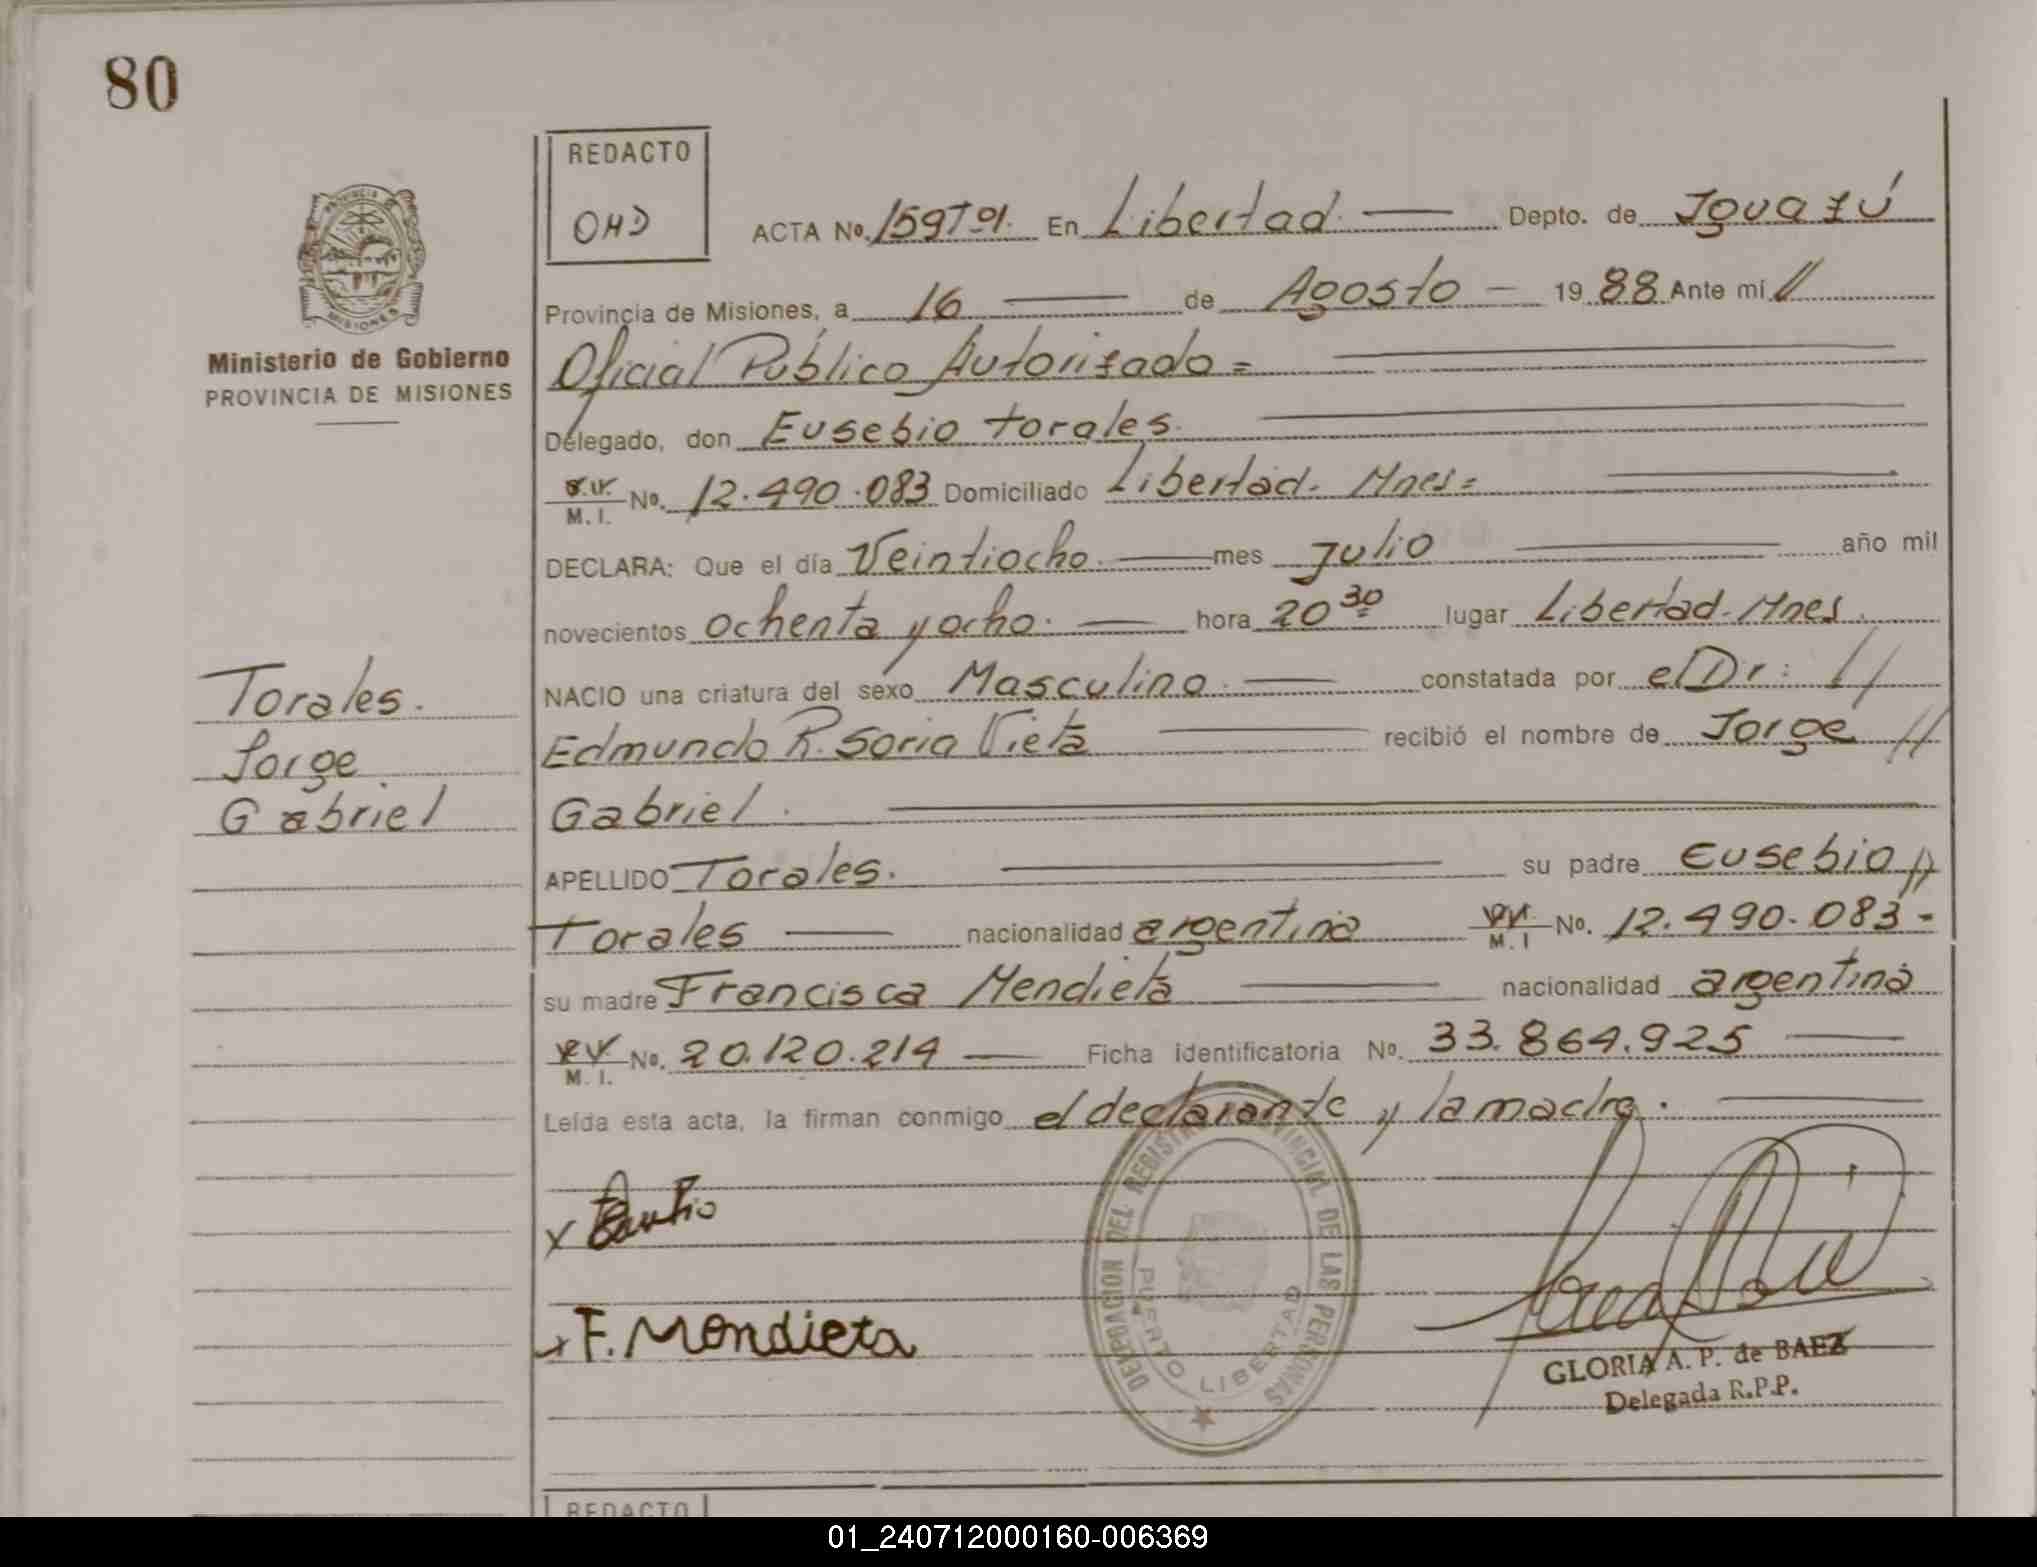 80
REDACTO
OHD
PROVINCIA DE
MISIONES
Ministerio de Gobierno
PROVINCIA DE MISIONES
ACTA No. 159Tº1. En Libertad. Depto. de Iguazú
Provincia de Misiones, a 16 de Agosto 1988 Ante mí //
Oficial Público Autorizado =
Delegado, don Eusebio torales.
M. I. No. 12.490.083 Domiciliado Libertad. Mnes =
DECLARA: Que el día Veintiocho. mes julio año mil
novecientos ochenta y ocho. hora 20 30 lugar Libertad-Mnes.
NACIO una criatura del sexo Masculino. constatada por el Dr: //
Edmundo R. Soria Vieta recibió el nombre de Jorge //
Gabriel.
Torales.
Jorge
Gabriel
APELLIDO Torales. su padre Eusebio //
Torales nacionalidad argentina M. I No. 12.490.083-
su madre Francisca Mendieta nacionalidad argentina
M. I. No. 20.120.214 Ficha identificatoria No. 33.864.925
Leída esta acta, la firman conmigo el declarante y la madre.
x
x F. Mondieta
DELEGACION DEL REGISTRO PROVINCIAL DE LAS PERSONAS
PUERTO LIBERTAD
GLORIA A. P. de BAEZ
Delegada R.P.P.
REDACTO
01_240712000160-006369